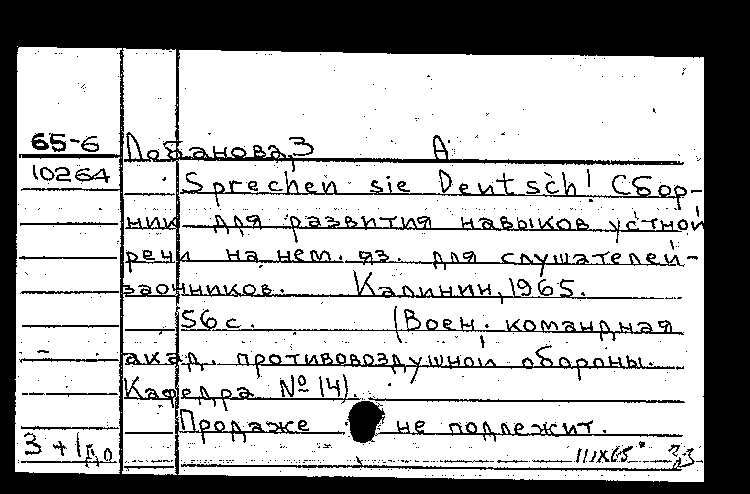 65-6
Лобанова, З А
10264
Sprechen sie Deutsch! Сбор-
ник для развития навыков устной
речи на нем. яз. для слушателей-
заочников. Калинин, 1965.
56 с. (Воен. командная
акад. противовоздушной обороны.
Кафедра № 14).
Продаже не подлежит.
3 + 1